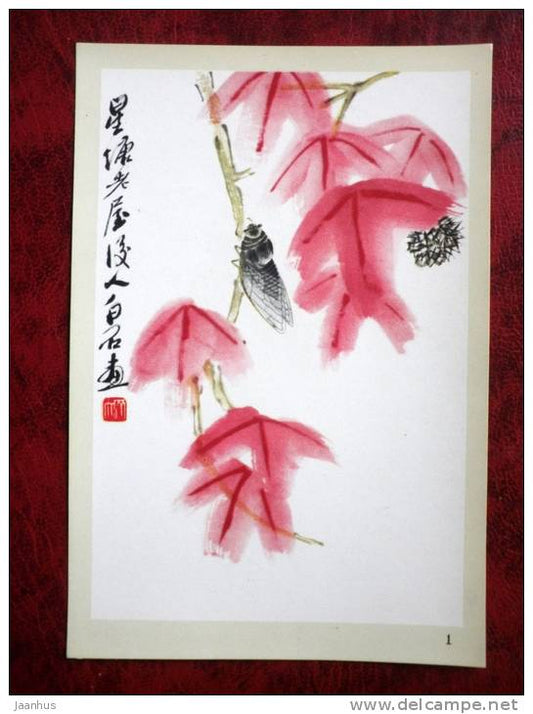 星塘老屋后人白石画
1
jaanhus
delcampe.net